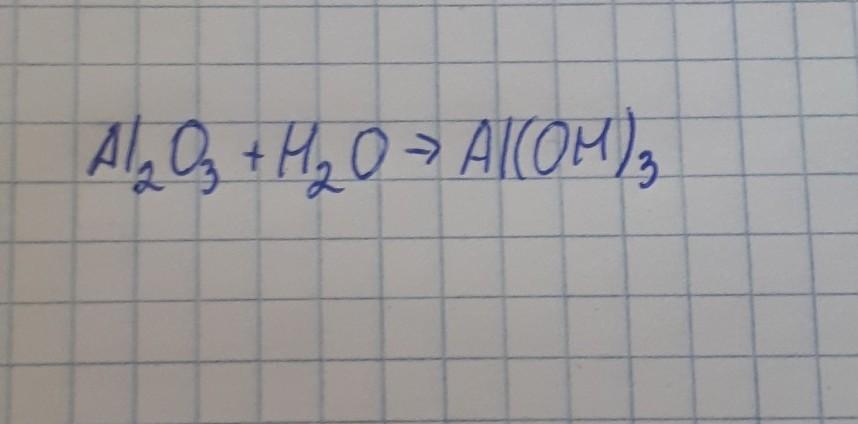 Al₂O₃ + H₂O → Al(OH)₃